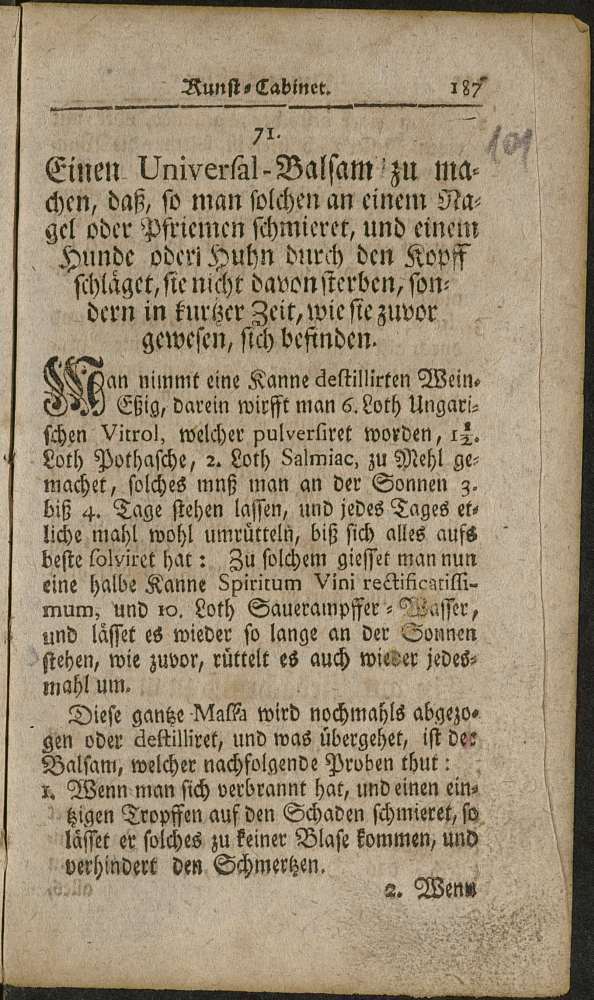 Kunst-Cabinet. 187
101
71.
Einen Universal-Balsam zu ma-
chen, daß, so man solchen an einem Na-
gel oder Pfriemen schmieret, und einem
Hunde oderi Huhn durch den Kopff
schläget, sie nicht davon sterben, son-
dern in kurtzer Zeit, wie sie zuvor
gewesen, sich befinden.
Man nimmt eine Kanne destillirten Wein-
Eßig, darein wirfft man 6. Loth Ungari-
schen Vitrol, welcher pulversiret worden, 1½.
Loth Pothasche, 2. Loth Salmiac, zu Mehl ge-
machet, solches mnß man an der Sonnen 3.
biß 4. Tage stehen lassen, und jedes Tages et-
liche mahl wohl umrütteln, biß sich alles aufs
beste solviret hat: Zu solchem giesset man nun
eine halbe Kanne Spiritum Vini rectificatissi-
mum, und 10. Loth Sauerampffer-Wasser,
und lässet es wieder so lange an der Sonnen
stehen, wie zuvor, rüttelt es auch wieder jedes-
mahl um.
Diese gantze Massa wird nochmahls abgezo-
gen oder destilliret, und was übergehet, ist der
Balsam, welcher nachfolgende Proben thut:
1. Wenn man sich verbrannt hat, und einen ein-
tzigen Tropffen auf den Schaden schmieret, so
lässet er solches zu keiner Blase kommen, und
verhindert den Schmertzen.
2. Wenn